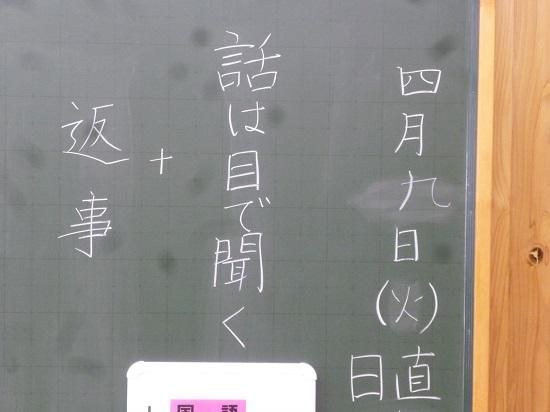 四月九日(火)
日直
話は目で聞く
+
返事
国語